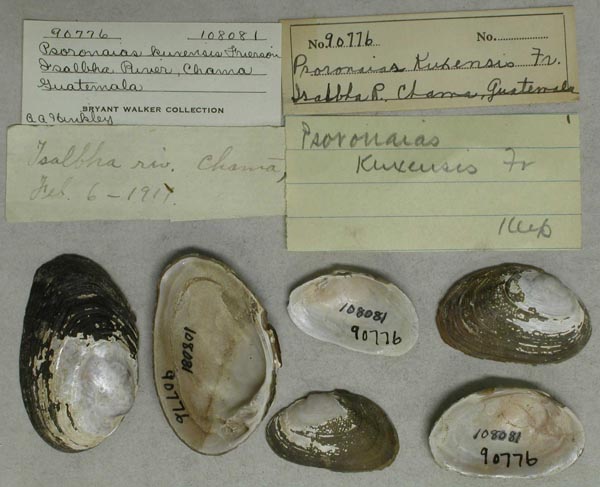 90776 108081
Psoronaias kuxensis Frierson
Tsalbha River, Chama
Guatemala
BRYANT WALKER COLLECTION
A.A. Hinkley
No. 90776 No.
Psoronaias Kuxensis Fr.
Tsalbha R. Chama, Guatemala
Tsalbha riv. Chama,
Feb. 6 - 1917.
Psoronaias
Kuxensis Fr
108081
90776
108081
90776
108081
90776